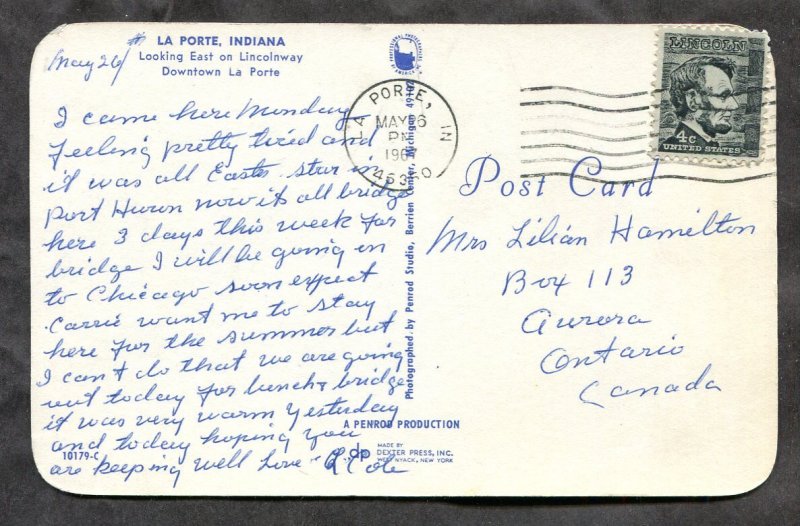 LA PORTE, INDIANA
Looking East on Lincolnway
Downtown La Porte
May 26
I came here Monday
feeling pretty tired and
it was all Easter star in
Port Huron now its all bridge
here 3 days this week for
bridge I will be going in
to Chicago soon expect
Carrie want me to stay
here for the summer but
I can't do that we are going
out today for lunch & bridge
it was very warm yesterday
and today hoping you
are keeping well Love
10179-C
Photographed by Penrod Studio, Berrien Center, Michigan 49102
A PENROD PRODUCTION
dp
MADE BY
DEXTER PRESS, INC.
WEST NYACK, NEW YORK
LA PORTE, IN
MAY 26
PM
LINCOLN
4c
UNITED STATES
Post Card
Mrs Lilian Hamilton
Box 113
Aurora
Ontario
Canada